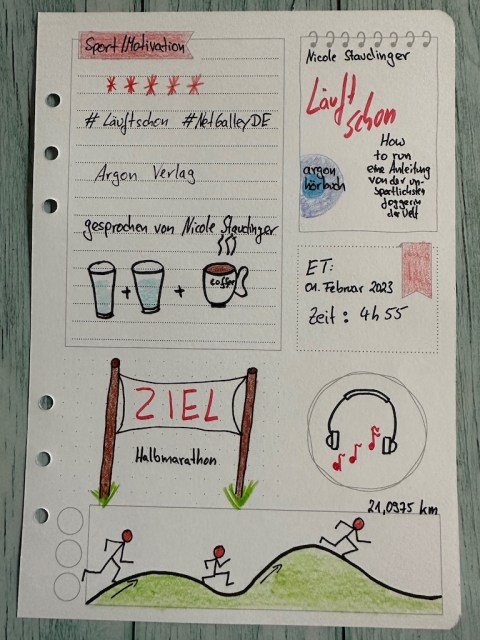 Sport/Motivation
# Läuftschon #NetGalleyDE
Argon Verlag
gesprochen von Nicole Staudinger
+ +
coffee
Nicole Staudinger
Läuft
schon
argon
hörbuch
How
to run
eine Anleitung
von der un-
sportlichsten
Joggerin
der Welt
ET:
01. Februar 2023
Zeit: 4h 55
ZIEL
Halbmarathon
21,0975 km